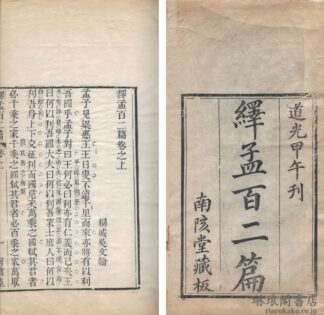 道光甲午刊
繹孟百二篇
南陔堂藏板
繹孟百二篇卷之上
孟子見梁惠王王曰叟不遠千里而來亦將有以利
吾國乎孟子對曰王何必曰利亦有仁義而已矣王
曰何以利吾國大夫曰何以利吾家士庶人曰何以
利吾身上下交征利而國危矣萬乘之國弒其君者
必千乘之家千乘之國弒其君者必百乘之家萬取
琳琅閣書店
rinrokaku.co.jp